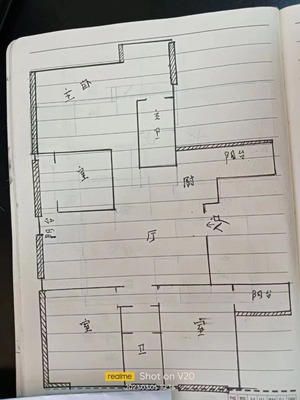 主卧
主卫
室
阳台
厨
阳台
入
厅
室
卫
室
阳台
realme Shot on V20
2023.03.05